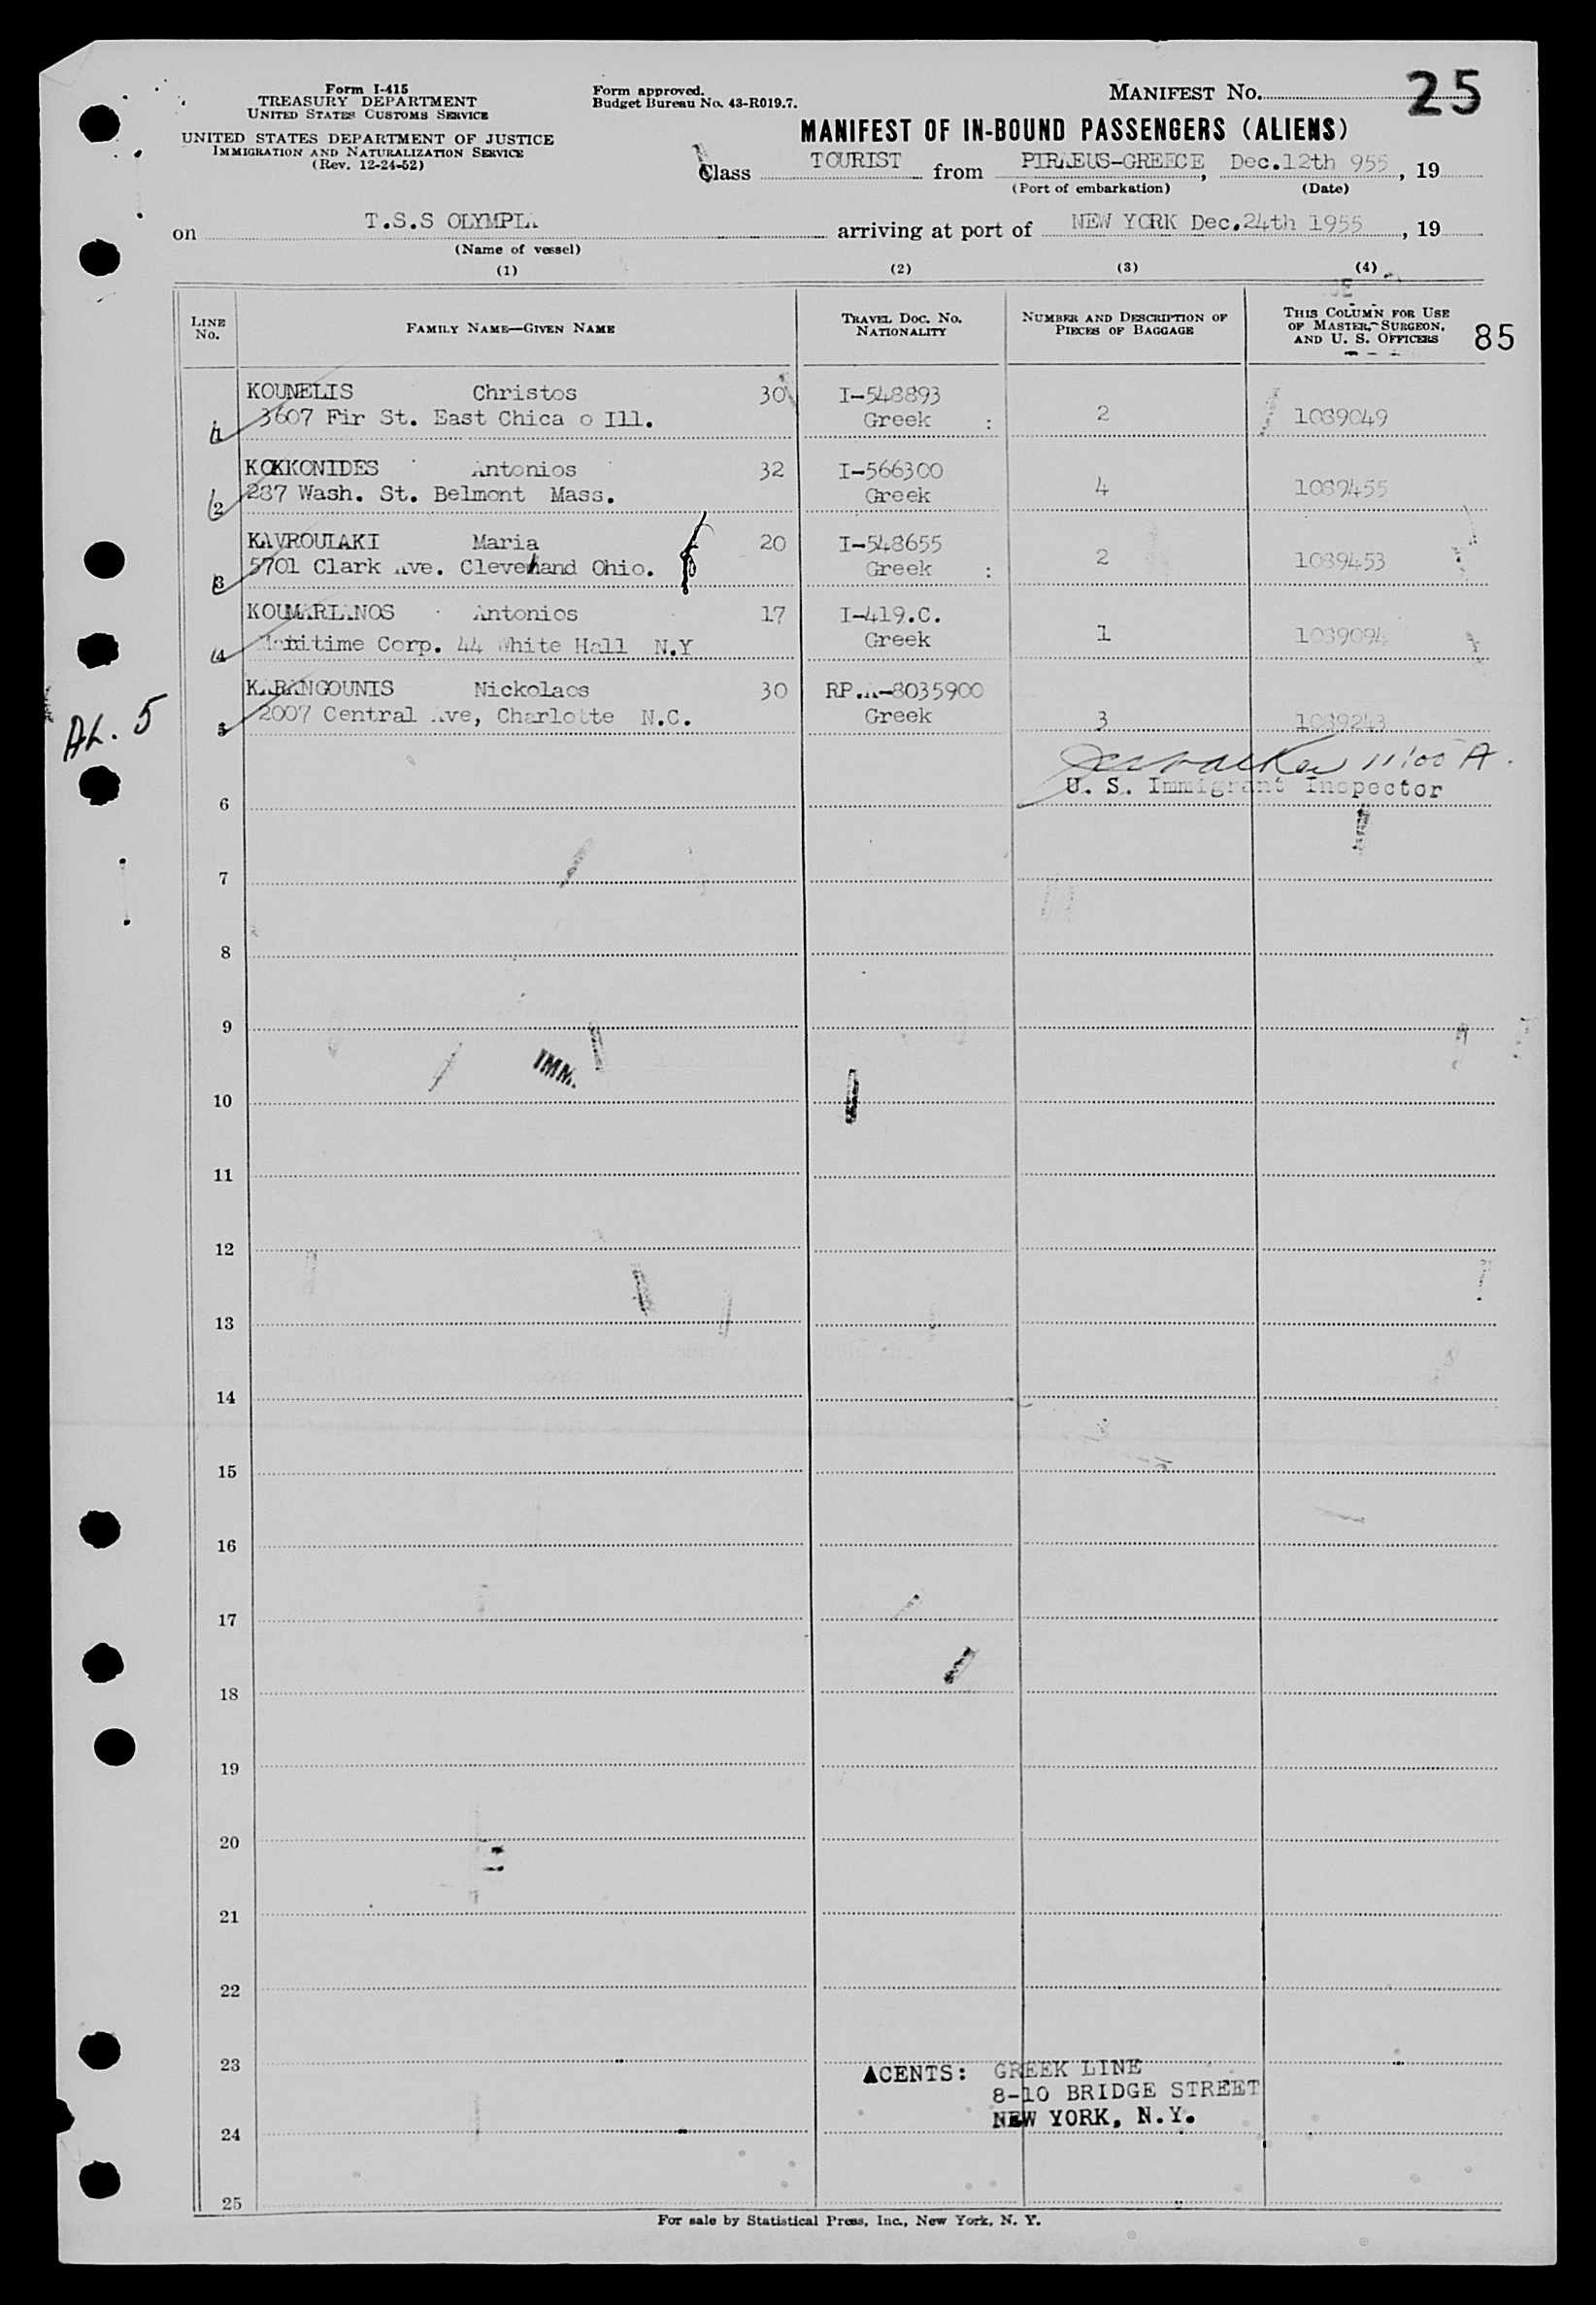 Form I-415
TREASURY DEPARTMENT
UNITED STATES CUSTOMS SERVICE
UNITED STATES DEPARTMENT OF JUSTICE
IMMIGRATION AND NATURALIZATION SERVICE
(Rev. 12-24-52)
Form approved.
Budget Bureau No. 43-R019.7.
MANIFEST No. 25
MANIFEST OF IN-BOUND PASSENGERS (ALIENS)
Class TOURIST from PIRAEUS-GREECE, Dec.12th 955, 19
(Port of embarkation) (Date)
on T.S.S OLYMPIA arriving at port of NEW YORK Dec.24th 1955, 19
(Name of vessel)
(1) (2) (3) (4)
LINE No. FAMILY NAME—GIVEN NAME TRAVEL DOC. NO. NATIONALITY NUMBER AND DESCRIPTION OF PIECES OF BAGGAGE THIS COLUMN FOR USE OF MASTER, SURGEON, AND U. S. OFFICERS 85
KOUNELIS Christos 30 I-548893
1 3607 Fir St. East Chica o Ill. Greek : 2 1089049
KOKKONIDES Antonios 32 I-566300
2 287 Wash. St. Belmont Mass. Greek 4 1089455
KAVROULAKI Maria 20 I-548655
3 5701 Clark Ave. Cleveland Ohio. Greek : 2 1089453
KOUMARIANOS Antonios 17 I-419.C.
4 Maritime Corp. 44 White Hall N.Y Greek 1 1089094
KARANGOUNIS Nickolaos 30 RP.A-8035900
5 2007 Central Ave, Charlotte N.C. Greek 3 1089243
AL. 5
11:00 A.
U. S. Immigrant Inspector
6
7
8
9
IMM.
10
11
12
13
14
15
16
17
18
19
20
21
22
23
AGENTS: GREEK LINE
8-10 BRIDGE STREET
NEW YORK, N.Y.
24
25
For sale by Statistical Press, Inc., New York, N. Y.